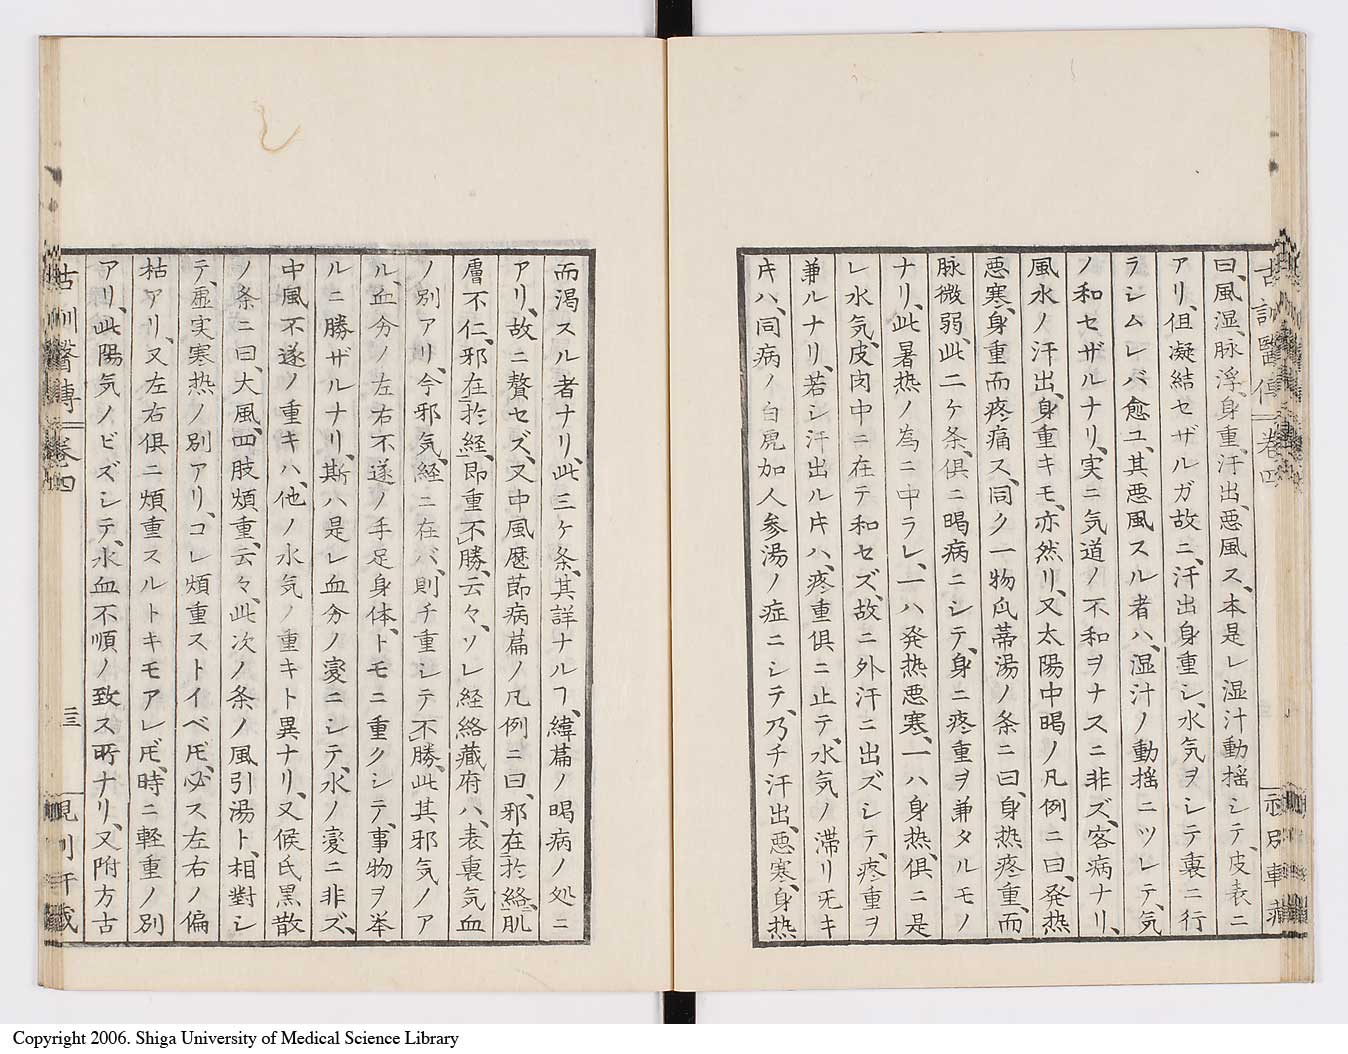 古訓醫傳 卷四
曰、風湿、脉浮、身重、汗出、悪風ス、本是レ湿汁動揺シテ、皮表ニ
アリ、但凝結セザルガ故ニ、汗出身重シ、水気ヲシテ裏ニ行
ラシムレバ愈ユ、其悪風スル者ハ、湿汁ノ動揺ニツレテ、気
ノ和セザルナリ、実ニ気道ノ不和ヲナスニ非ズ、客病ナリ、
風水ノ汗出、身重キモ、亦然リ、又太陽中暍ノ凡例ニ曰、発熱
悪寒、身重而疼痛ス、同ク一物瓜蔕湯ノ条ニ曰、身熱疼重、而
脉微弱、此二ケ条、倶ニ暍病ニシテ、身ニ疼重ヲ兼タルモノ
ナリ、此暑熱ノ為ニ中ラレ、一ハ発熱悪寒、一ハ身熱、倶ニ是
レ水気、皮肉中ニ在テ和セズ、故ニ外汗ニ出ズシテ、疼重ヲ
兼ルナリ、若シ汗出ル𪜈ハ、疼重倶ニ止テ、水気ノ滞リ旡キ
𪜈ハ、同病ノ白虎加人参湯ノ症ニシテ、乃チ汗出、悪寒、身熱
而渇スル者ナリ、此三ケ条、其詳ナルヿ、緯篇ノ暍病ノ処ニ
アリ、故ニ贅セズ、又中風歴節病篇ノ凡例ニ曰、邪在於絡、肌
膚不仁、邪在於経、即重不勝、云々、ソレ経絡蔵府ハ、表裏気血
ノ別アリ、今邪気、経ニ在バ、則チ重シテ不勝、此其邪気ノア
ル、血分ノ左右不遂ノ手足身体、トモニ重クシテ、事物ヲ挙
ルニ勝ザルナリ、斯ハ是レ血分ノ変ニシテ、水ノ変ニ非ズ、
中風不遂ノ重キハ、他ノ水気ノ重キト異ナリ、又候氏黒散
ノ条ニ曰、大風、四肢煩重、云々、此次ノ条ノ風引湯ト、相對シ
テ、虚実寒熱ノ別アリ、コレ煩重ストイベ𪜈、必ス左右ノ偏
枯アリ、又左右倶ニ煩重スルトキモアレ𪜈、時ニ軽重ノ別
アリ、此陽気ノビズシテ、水血不順ノ致ス所ナリ、又附方古
古訓醫傳 卷四
三